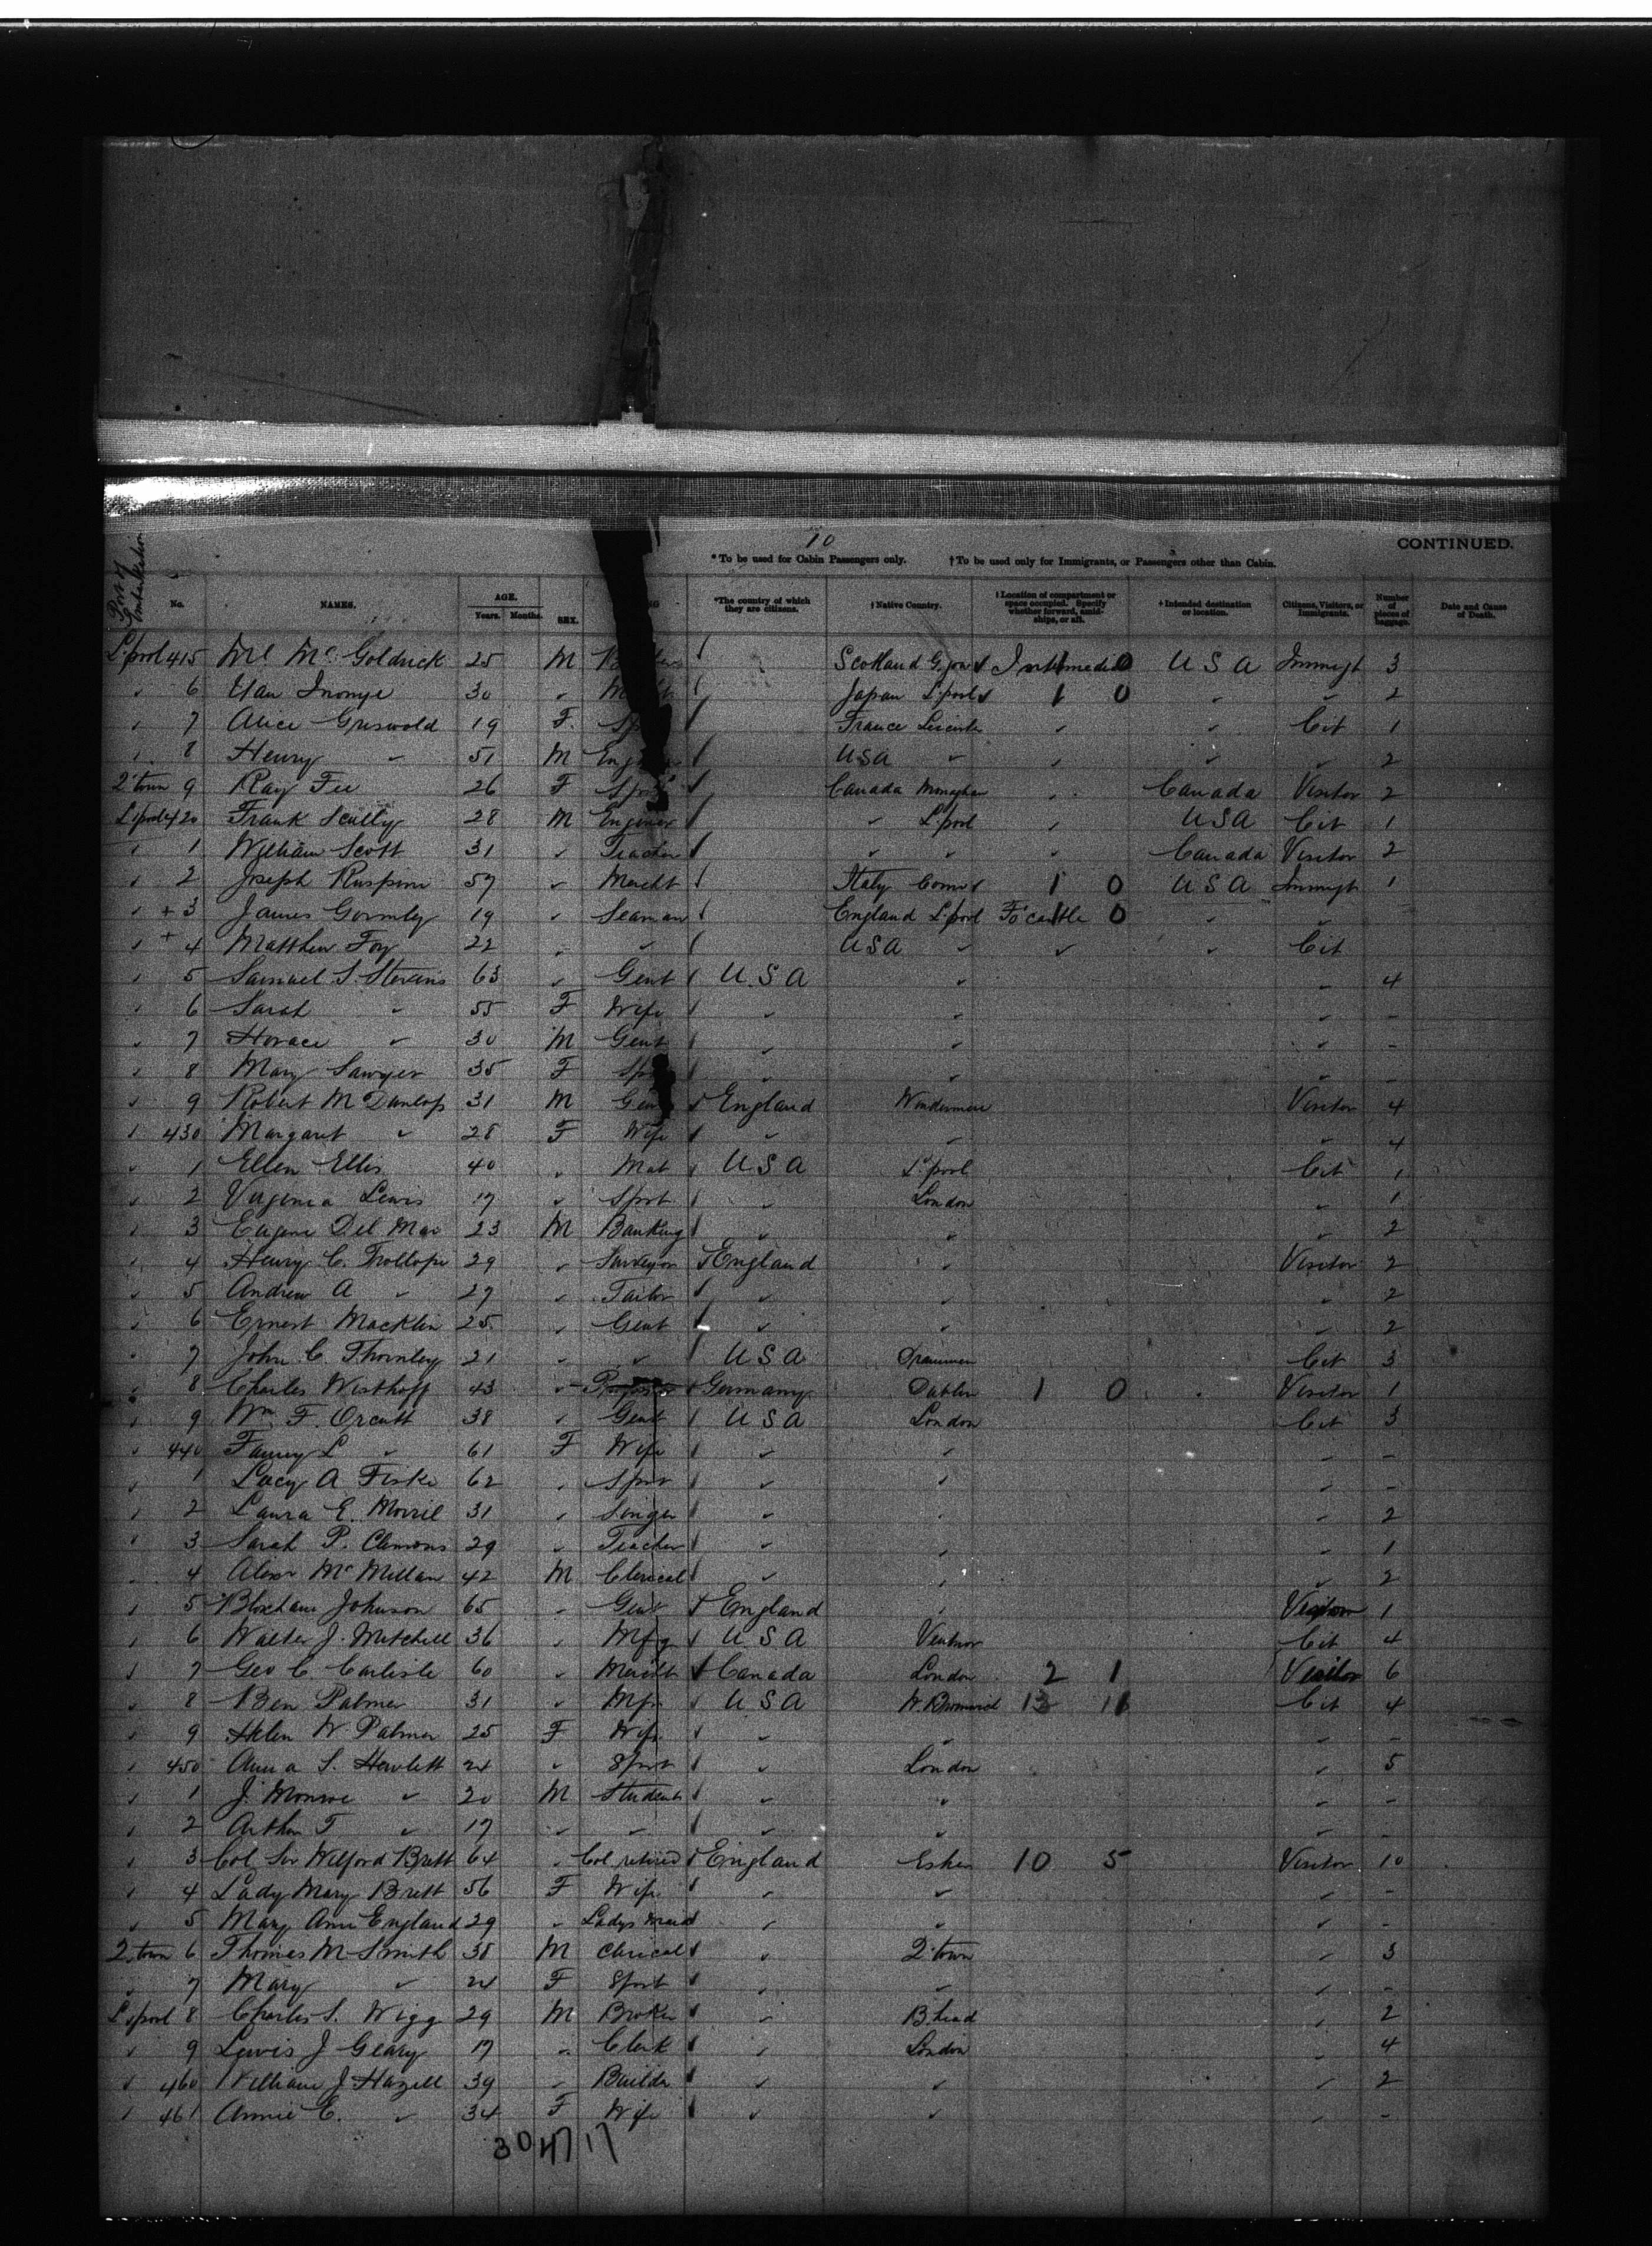 10
CONTINUED.
* To be used for Cabin Passengers only. † To be used only for Immigrants, or Passengers other than Cabin.
Port of Embarkation No. NAMES. AGE. Years. Months. SEX. *The country of which they are citizens. † Native Country. † Location of compartment or space occupied. Specify whether forward, amidships, or aft. † Intended destination or location. Citizens, Visitors, or Immigrants. Number of pieces of baggage. Date and Cause of Death.
L'pool 415 Mc Goldrick 25 M Scotland 1 0 U S A Immgt 3
" 6 30 " Japan L'pool 1 0 " " 2
" 7 Alice Griswold 19 F. France " " Cit 1
" 8 Henry " 51 M USA " " " " 2
Q'town 9 Ray Fee 26 F Canada " Canada Visitor 2
L'pool 420 Frank Scully 28 M Engineer " L'pool " USA Cit 1
" 1 William Scott 31 " Teacher " " " Canada Visitor 2
" 2 Joseph 57 " Mercht Italy 1 0 U S A Immgt 1
" + 3 James Gormley 19 " Seaman England L'pool Fo'castle 1 0 " "
" + 4 Matthew Foy 22 " " USA " " " Cit
" 5 Samuel S. Stevens 63 " Gent U S A " " 4
" 6 Sarah " 55 F Wife " " " -
" 7 Horace " 30 M Gent " " " -
" 8 Mary Sawyer 35 F " " " -
" 9 Robert M Dunlop 31 M Gent England Windermere Visitor 4
" 430 Margaret " 28 F Wife " " " 4
" 1 Ellen Ellis 40 " Mat U S A L'pool Cit 1
" 2 Virginia Lewis 17 " Spst " London " 1
" 3 Eugene Del Mar 23 M Banking " " " 2
" 4 Henry C. Trollope 29 " Surveyor England " Visitor 2
" 5 Andrew A " 27 " Tailor " " " 2
" 6 Ernest Macklin 25 " Gent " " " 2
" 7 John C. Thornley 21 " " U S A Cit 3
" 8 Charles Westhoff 43 " Professor Germany Dublin 1 0 Visitor 1
" 9 Wm F. Orcutt 38 " Gent U S A London Cit 3
" 440 Fanny L " 61 F Wife " " " -
" 1 Lucy A Fiske 62 " Spst " " " -
" 2 Laura E. Morril 31 " Singer " " " 2
" 3 Sarah P. Clemons 29 " Teacher " " " 1
" 4 Alexr McMillan 42 M Clerical " " " 2
" 5 Bloxham Johnson 65 " Gent England " Visitor 1
" 6 Walter J. Mitchell 36 " Mfg U S A Ventnor Cit 4
" 7 Geo C. Carlisle 60 " Mercht Canada London 2 1 Visitor 6
" 8 Ben Palmer 31 " Mfr U S A Cit 4
" 9 Helen W. Palmer 25 F Wife " " " -
" 450 Anna S. Hewlett 24 " Spst " London " 5
" 1 J. Monroe " 20 M Student " " " -
" 2 Arthur T " 17 " " " " " -
" 3 Col Sir Wilford Brett 64 " Col retired England Esher 10 5 Visitor 10
" 4 Lady Mary Brett 56 F Wife " " " -
" 5 Mary Ann England 29 " Ladys Maid " " " -
Q'town 6 Thomas M Smith 38 M Clerical " Q'town " 3
" 7 Mary " 24 F Spst " " " -
L'pool 8 Charles S. Wigg 29 M Broker " B.head " 2
" 9 Lewis J Geary 17 " Clerk " London " 4
" 460 William J Hazell 39 " Builder " " " 2
" 461 Annie E. " 34 F Wife " " " -
30 47 17